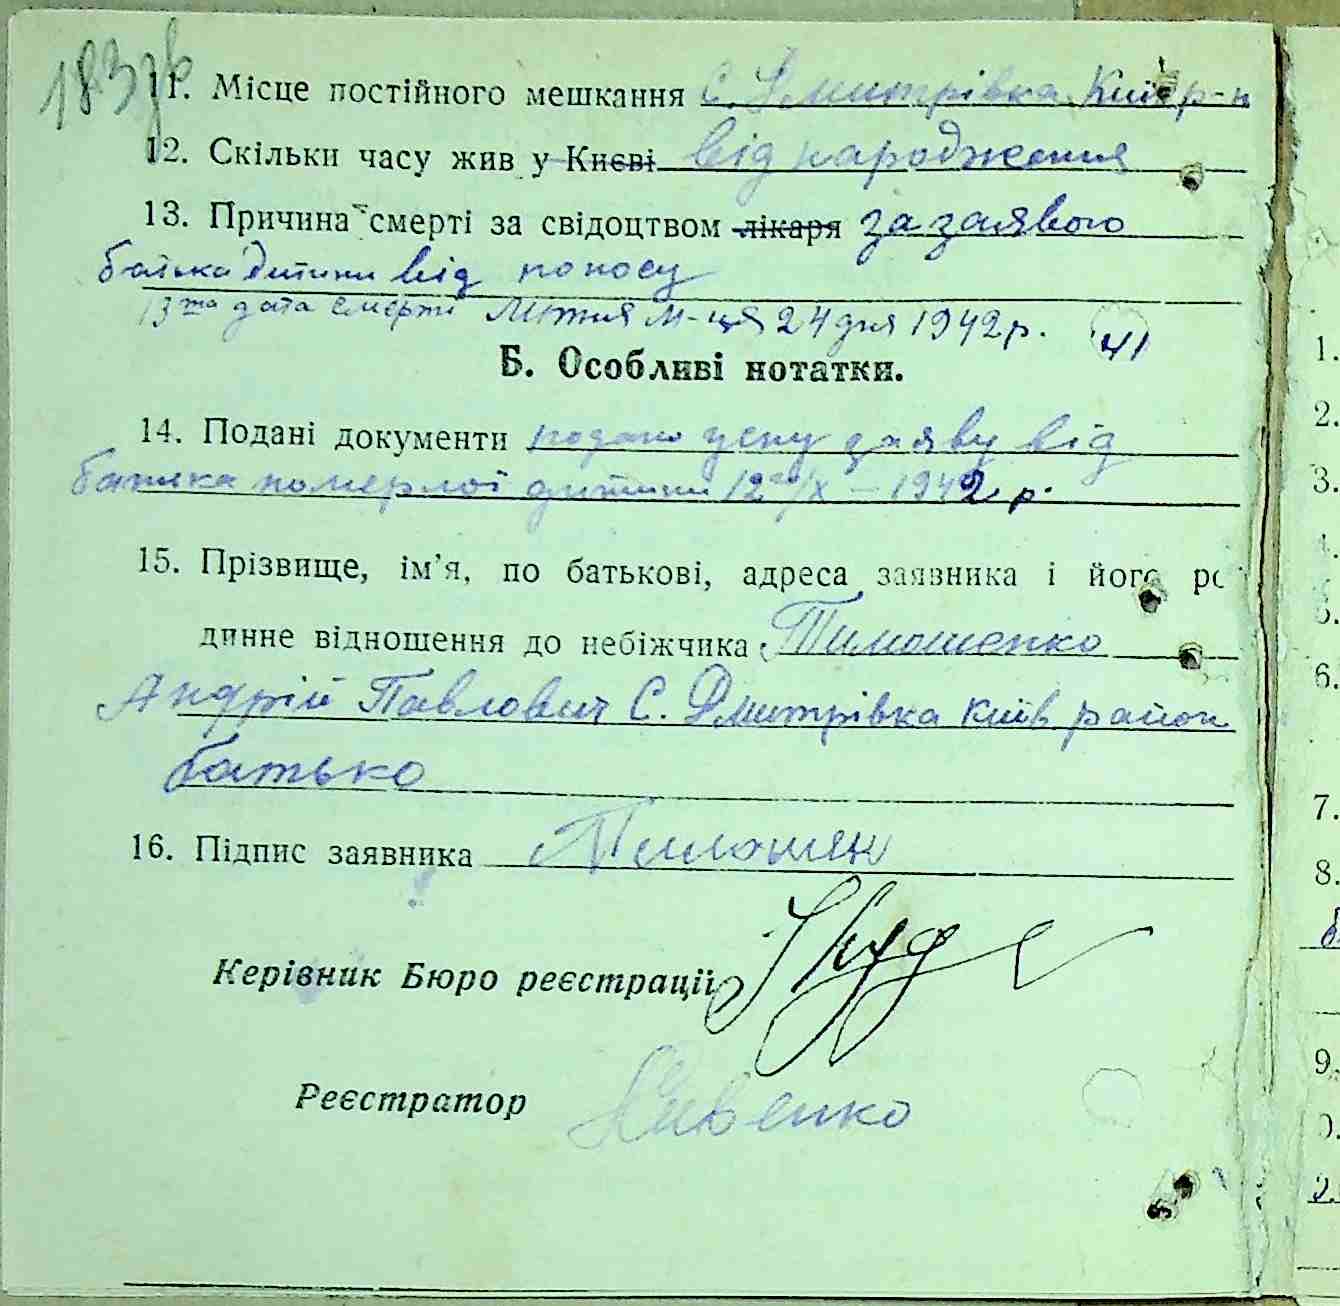 183зв
11. Місце постійного мешкання с. Дмитрівка Київ р-н
12. Скільки часу жив у Києві від народження
13. Причина смерті за свідоцтвом лікаря за заявою
батька дитини від поносу
13та дата смерти Липня м-ця 24 дня 1942 р.
41
Б. Особливі нотатки.
14. Подані документи подано усну заяву від
батька померлої дитини 12го/X – 1942 р.
15. Прізвище, ім'я, по батькові, адреса заявника і його ро
динне відношення до небіжчика Тимошенко
Андрій Павлович С. Дмитрівка Київ. район
батько
16. Підпис заявника Тимошен
Керівник Бюро реєстрації
Реєстратор
1.
2.
3.
6.
7.
8.
9.